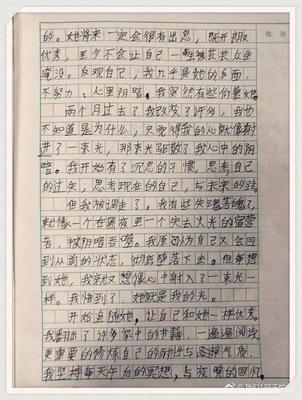 的。她将来一定会很有出息，既开朗
优秀，至少不会让自己一生被芸芸众生
淹没。反观自己，我几乎是她的反面，
不努力、心里阴暗。我竟然有些仰慕她。
两个月过去了我改变了许多，我也
不知道是为什么，只觉得我的心就像射
进了一束光，那束光驱散了我心中的阴
暗。我开始有了沉思的习惯，思考自己
的过失，思考现在的自己，与未来的路
但我被调走了。我有些失魂落魄了，
就像一个在黑夜里一个失去火光的宿营
者，被阴暗吞噬。我原以为自己又会回
到从前的状态，彻底堕落下去。但每想
到她，我就又想像心中射入了一束光一
样。我悟到了，她就是我的光。
开始追随她，让自己和她一样优秀。
我翻出了许多家中的书籍，一遍遍阅读
更重要的修炼自己的耐性与
气质，
我坚持每天午后的冥想，与夜晚的回忆，